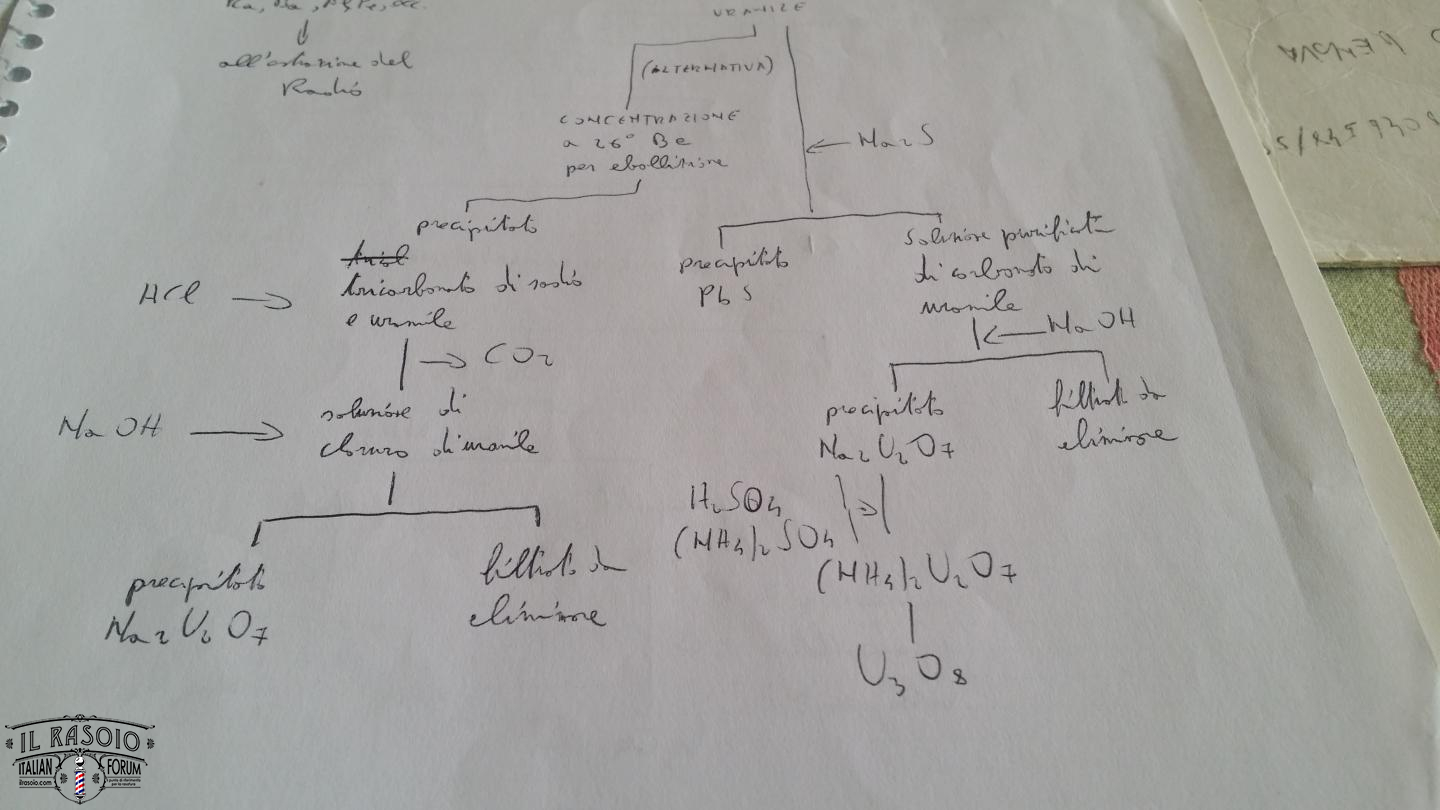 all'estrazione del
Radio
URANILE
(ALTERNATIVA)
CONCENTRAZIONE
a 26° Be
per ebollizione
Na2S
precipitato
tricarbonato di sodio
e uranile
HCl
CO2
soluzione di
cloruro di uranile
NaOH
precipitato
Na2U2O7
filtrato da
eliminare
precipitato
PbS
soluzione purificata
di carbonato di
uranile
NaOH
precipitato
Na2U2O7
filtrato da
eliminare
H2SO4
(NH4)2SO4
(NH4)2U2O7
U3O8
IL RASOIO
ITALIAN FORUM
ilrasoio.com